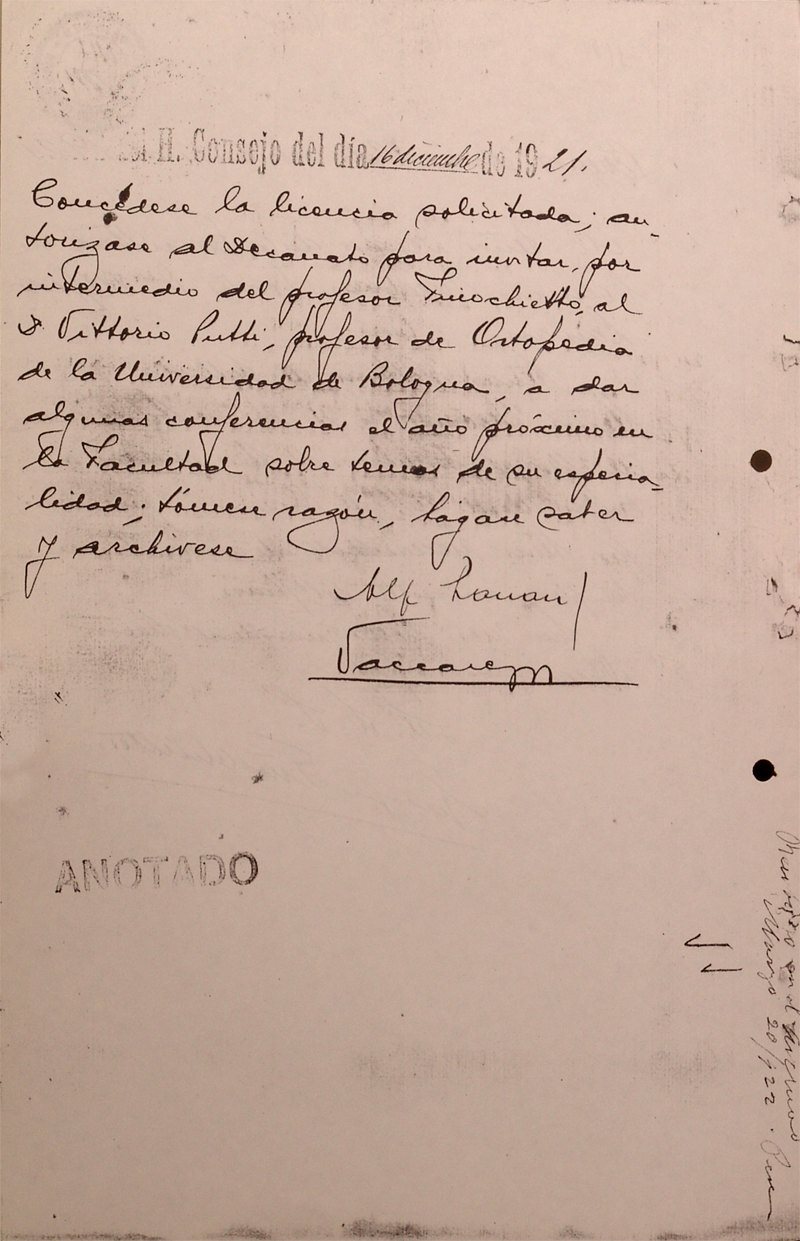 H. Consejo del día 16 diciembre de 1921.
Concédese la licencia solicitada; au-
torízase al Decanato para invitar, por
intermedio del profesor Finochietto, al
Dr Vittorio Putti, profesor de Ortopedia
de la Universidad de Bologna, a dar
algunas conferencias el año próximo en
la Facultad sobre temas de su especia-
lidad; tómese razón, hágase saber
y archívese
Alf Lanari
Vaccarezza
ANOTADO
en el
Marzo 20/922.